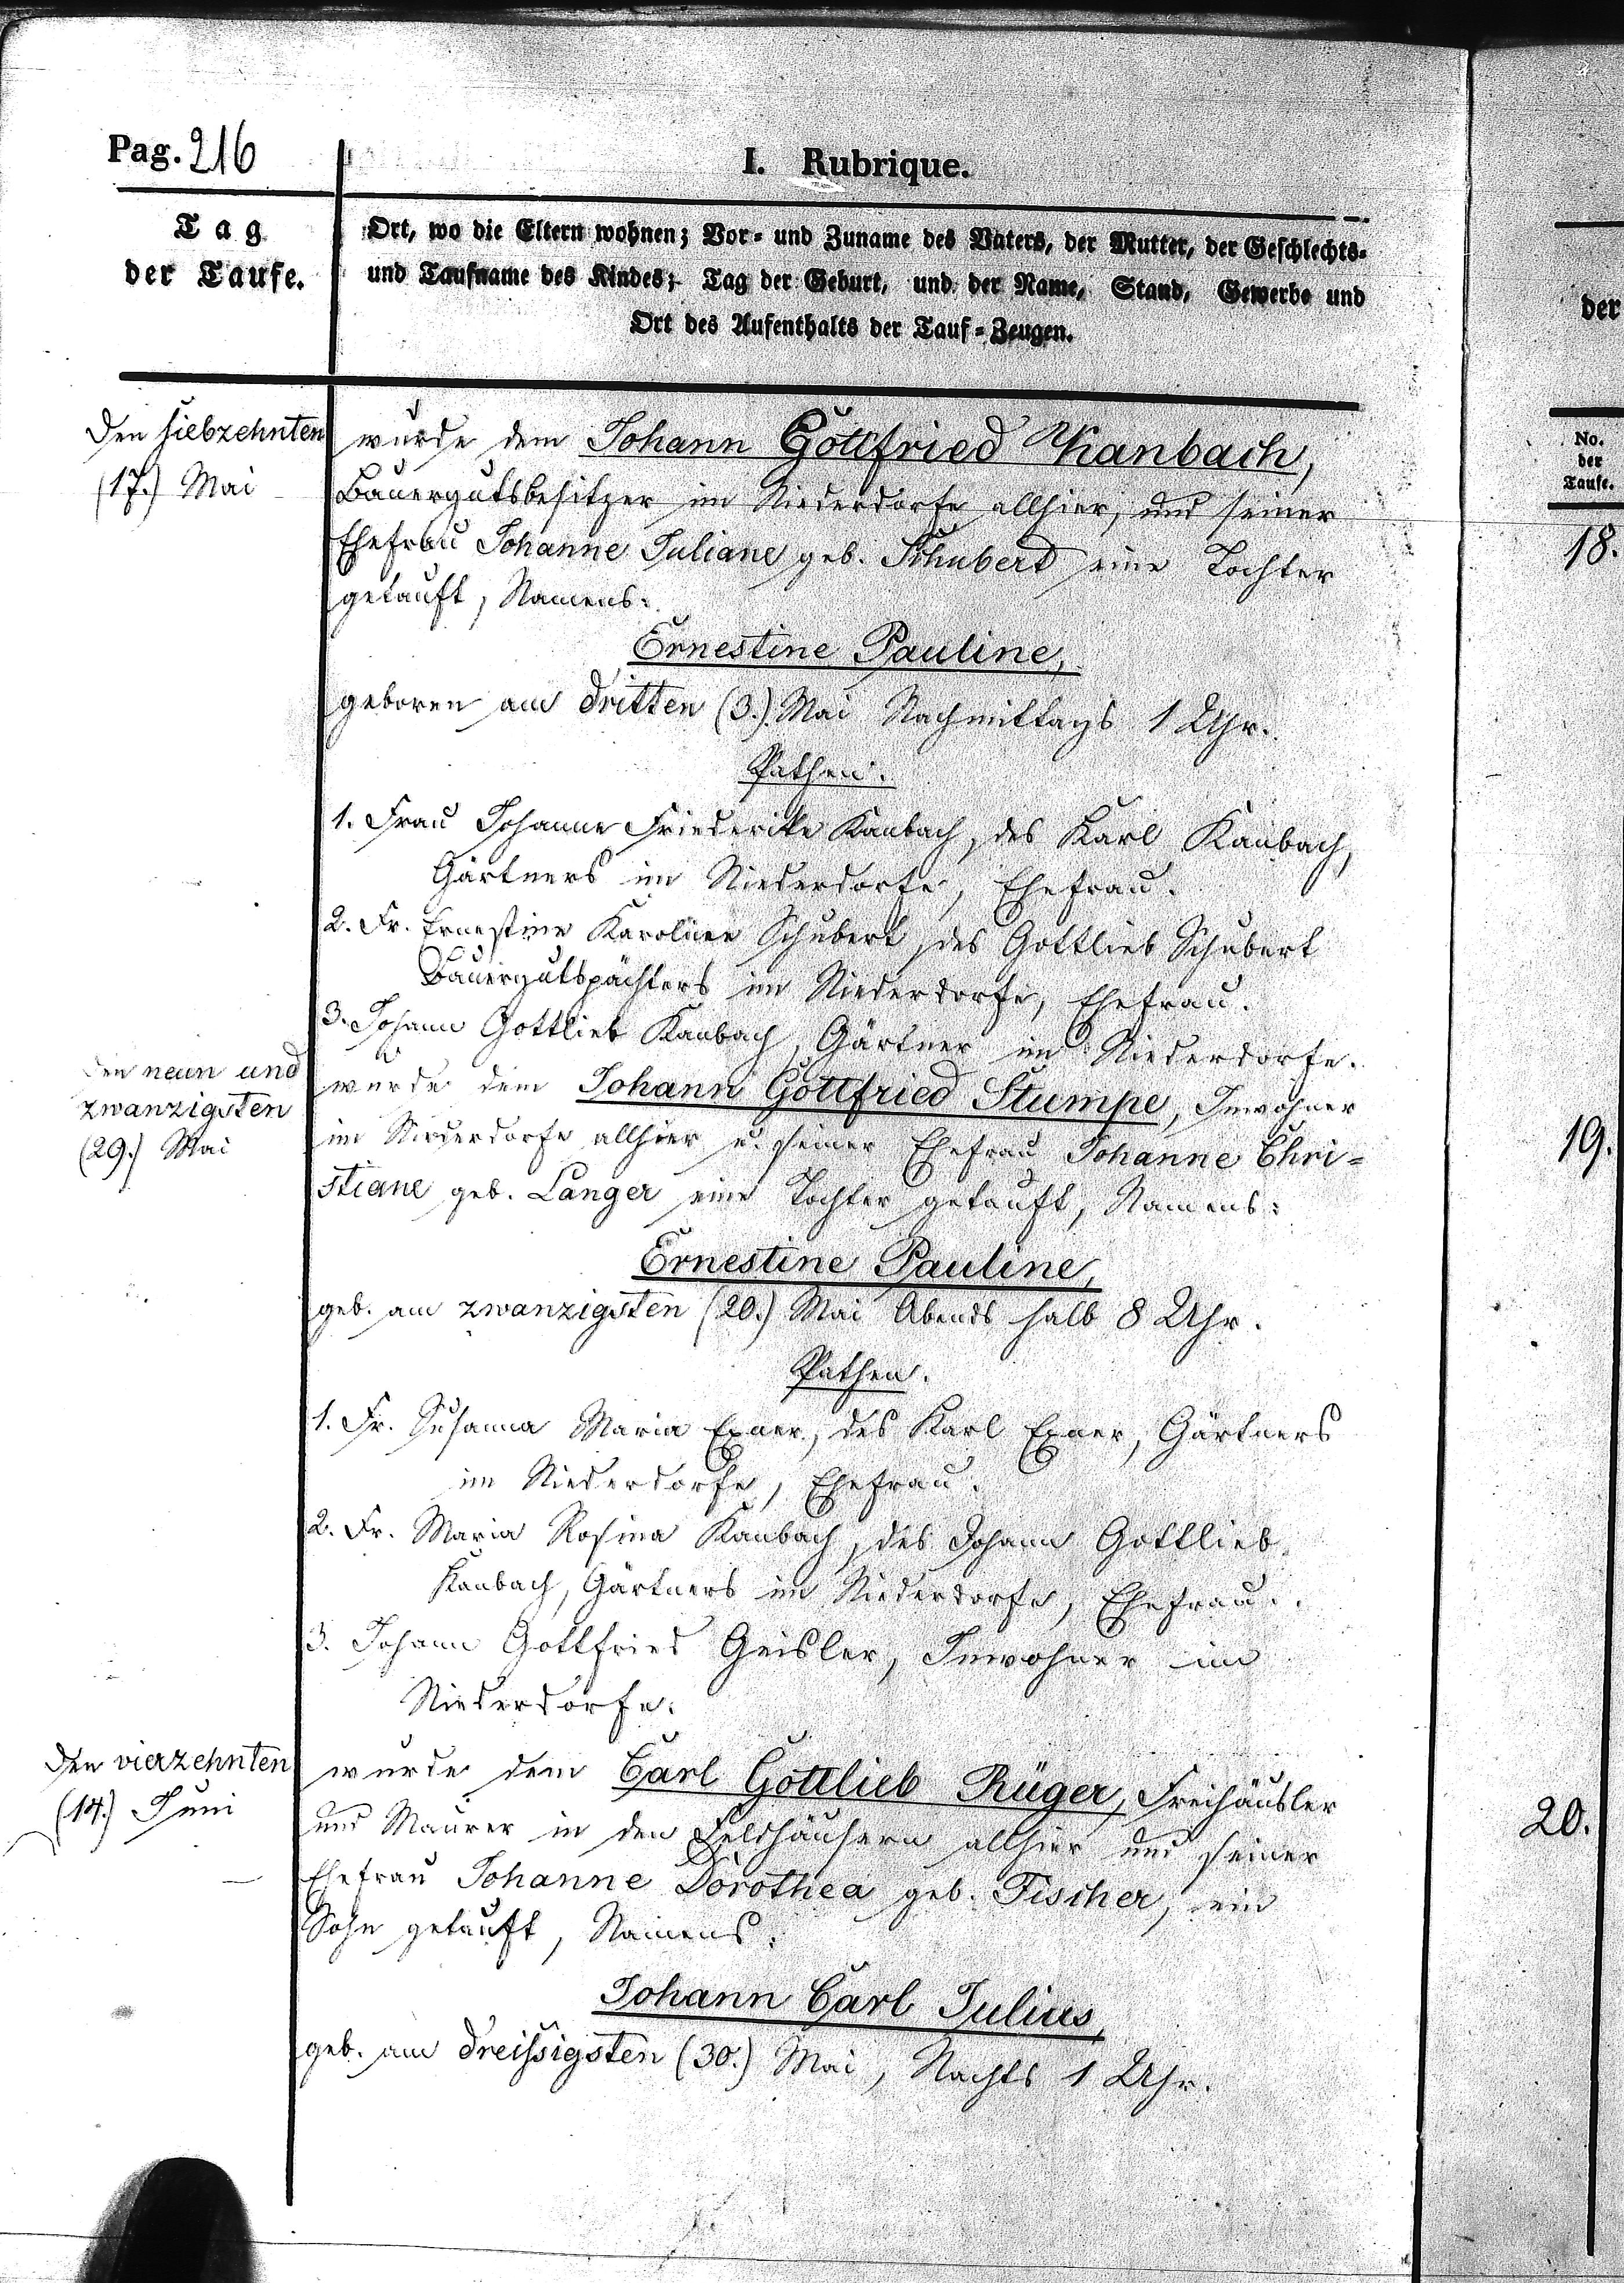 Pag. 216
I. Rubrique.
Tag
der Taufe.
Ort, wo die Eltern wohnen; Vor- und Zuname des Vaters, der Mutter, der Geschlechts-
und Taufname des Kindes; Tag der Geburt, und der Name, Stand, Gewerbe und
Ort des Aufenthalts der Tauf-Zeugen.
Den siebzehnten
(17.) Mai
wurde dem Johann Gottfried Kanbach,
Bauergutsbesitzer im Niederdorfe allhier, und seiner
Ehefrau Johanne Juliane geb. Schubert eine Tochter
getauft, Namens:
Ernestine Pauline,
geboren am dritten (3.) Mai Nachmittags 1 Uhr.
Pathen.
1. Frau Johanne Friederike Kanbach, des Karl Kanbach,
Gärtners im Niederdorfe, Ehefrau.
2. Fr. Ernestine Karoline Schubert, des Gottlieb Schubert
Bauergutspächters im Niederdorfe, Ehefrau.
3. Johann Gottlieb Kanbach, Gärtner im Niederdorfe.
Den neun und
zwanzigsten
(29.) Mai
wurde dem Johann Gottfried Stumpe, Inwohner
im Niederdorfe allhier u. seiner Ehefrau Johanne Chri-
stiane geb. Langer eine Tochter getauft, Namens:
Ernestine Pauline,
geb. am zwanzigsten (20.) Mai Abends halb 8 Uhr.
Pathen.
1. Fr. Susanna Maria Exner, des Karl Exner, Gärtners
im Niederdorfe, Ehefrau.
2. Fr. Maria Rosina Kanbach, des Johann Gottlieb
Kanbach, Gärtners im Niederdorfe, Ehefrau.
3. Johann Gottfried Geisler, Inwohner im
Niederdorfe.
Den vierzehnten
(14.) Juni
wurde dem Carl Gottlieb Rüger, Freihäusler
und Maurer in den Feldhäusern allhier und seiner
Ehefrau Johanne Dorothea geb. Fischer, ein
Sohn getauft, Namens:
Johann Carl Julius,
geb. am dreißigsten (30.) Mai, Nachts 1 Uhr.
der
No.
der
Taufe.
18.
19.
20.